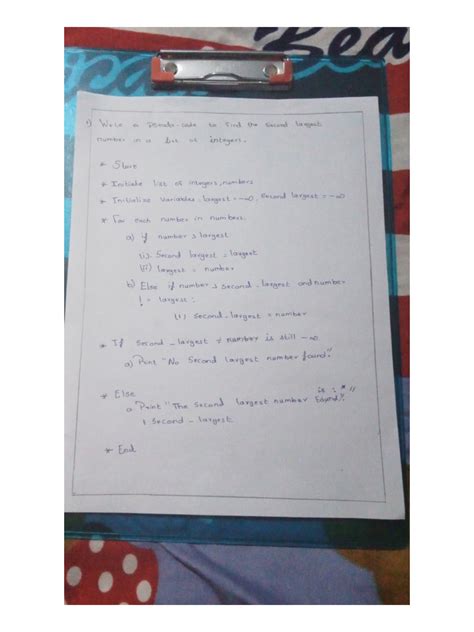 Bea
1) Write a Pseudo-code to find the second largest
number in a list of integers.
* Start
* Initialize list of integers, numbers
* Initialize variables, largest = -∞, second largest = -∞
* For each number in numbers.
a) if number > largest
(i). Second largest = largest
(ii) largest = number
b) Else if number > second_largest and number
! = largest:
(i) second_largest = number
* If second_largest number is still -∞
a) Print "No second largest number found."
* Else
a. Print "The second largest number is : "
, second_largest
* End